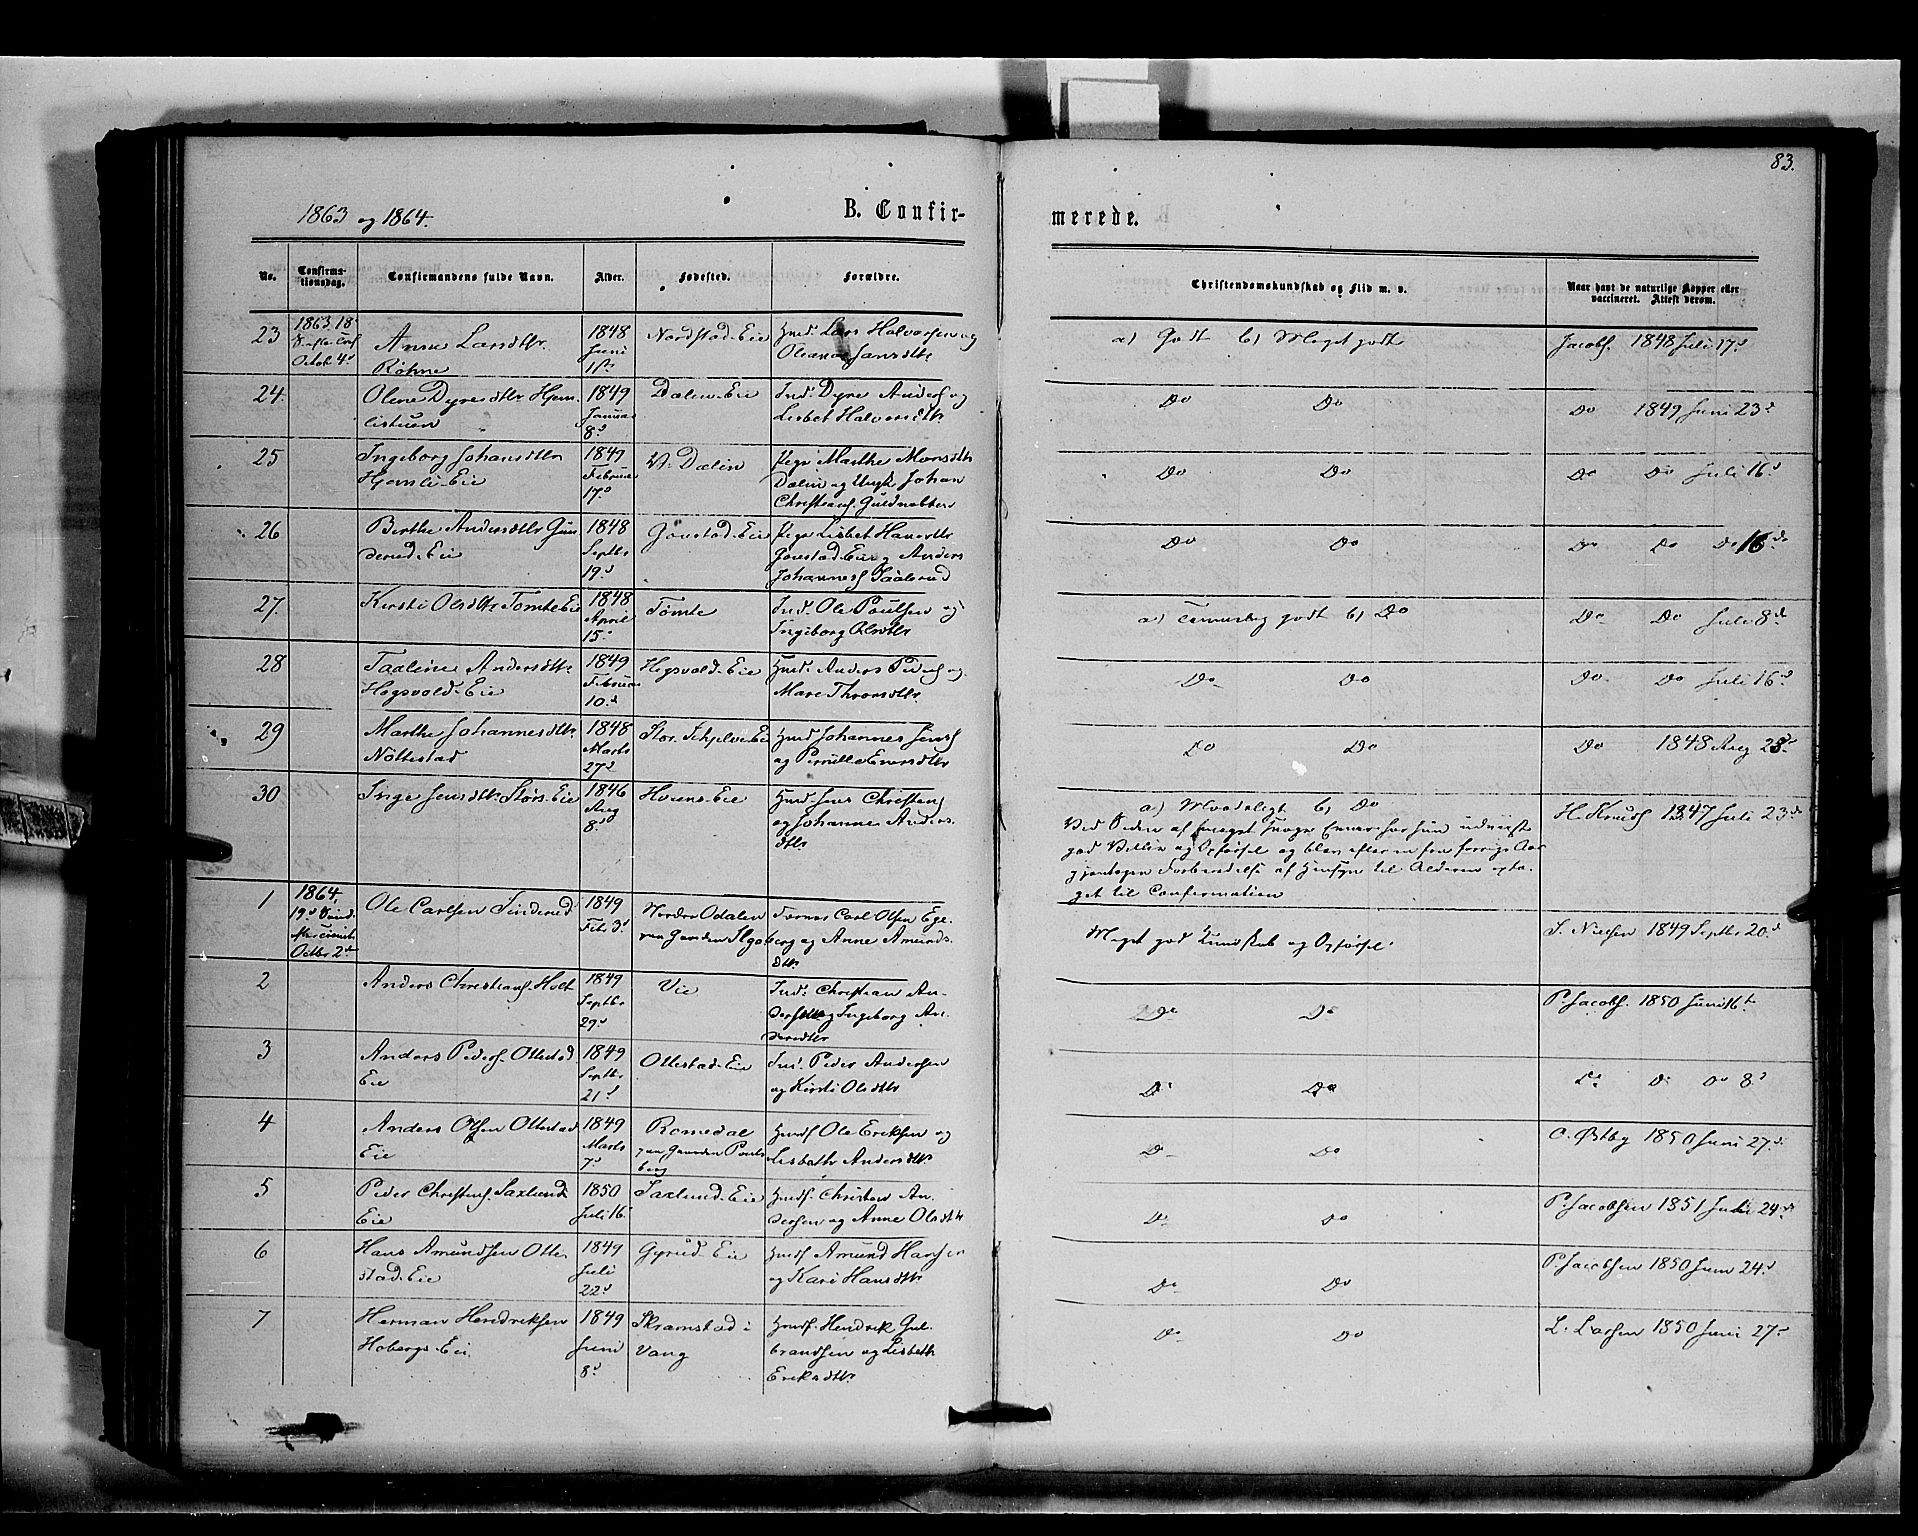 83.
1863 og 1864.
B. Confir-
merede.
No.
Confirma-
tionsdag.
Confirmandens fulde Navn.
Alder.
Fødested.
Forældre.
Christendomskundskab og Flid m. v.
Naar havt de naturlige Kopper eller
vaccineret. Attest derom.
23
1863 18
Octob. 4d
Anne Larsdtr.
Røhne
1848
Juni
11te
Nordstad-Eie
Husmd. Lars Halvorsen og
Oleana Jansdtr
a) Godt b) Meget godt
Jacobs. 1848 Juli 17d
24.
Olene Dyresdtr Hjem-
listuen
1849
Januar
8d
Dælin-Eie
Ind. Dyre Anders. og
Lisbet Halvorsdtr.
Do Do
Do 1849 Juni 23d
25
Ingeborg Johansdtr
Hjemli-Eie
1849
Februar
17d
V. Dælin
Pige Marthe Monsdtr
Dælin og Ungk. Johan
Christians. Guldnabben
Do Do
Do Do Juli 16d
26
Berthe Andersdtr Gun-
derud-Eie
1848
Septbr
19d
Gaustad-Eie
Pige Lisbet Hansdtr
Gaustad-Eie og Anders
Johannes.
Do Do
Do Do Do 16de
27.
Kersti Olsdtr Tomte Eie
1848
April
15.
Tomte
Ind. Ole Poulsen og
Ingeborg Olsdtr
a) Temmelig godt b) Do
Do Do Juli 8d
28
Taaline Andersdtr
Hogsvold-Eie
1849
Februar
10.d
Hogsvold-Eie
Husmd. Anders Peders. og
Mare Thorsdtr.
Do Do
Do Do Juli 16d
29
Marthe Johannesdtr.
Nøttestad
1848
Marts
27d
Stor. Skjelve-Eie
Husmd Johannes Jens.
og Pernille Eversdtr
Do Do
Do 1848 Aug 28d
30
Inge Jensdtr. Störs-Eie
1846
Aug
8d
Horens-Eie
Husmd Jens Christens.
og Johanne Anders-
dtr.
a) Maadeligt b) Do
Ved Siden af meget
god Villie og Opførsel og blev efter en fra forrige Aar
gjentagen Forberedelse af Hensyn til Alderen opta-
get til Confirmation
H. Knuds. 1847 Juli 23de
1
1864,
19d Sønd.
Octbr 2de
Ole Carlsen Sinderud
1849
Febr 3d
Nordre Odalen
paa Gaarden
Carl Olsen Ege-
berg og Anne Amunds-
dtr.
Meget god Kundskab og Opførsel
S. Nielsen 1849 Septbr 20.d
2
Anders Christians. Holt
1849
Septbr
29d
Vie
Ind. Christian An-
dersen og Ingeborg An-
dersdtr
Do Do
P. Jacobs. 1850 Juni 16te
3
Anders Peders. Ottestad
Eie
1849
Septbr
21d
Ottestad-Eie
Ind. Peder Andersen
og Kirsti Olsdtr
Do Do
Do Do Do 8.d
4
Anders Olsen Ottestad
Eie
1849
Marts
7d
Romedal
paa Gaarden Pouls-
berg
Husmd. Ole Eriksen og
Lisbeth Andersdtr.
Do Do
C. Østby 1850 Juni 27d
5
Peder Christens. Saxlund-
Eie
1850
Juli 16
Saxlund-Eie
Husmd. Christen An-
dersen og Anne Olsdtr
Do Do
P. Jacobsen 1851 Juli 24de
6
Hans Amundsen Otte-
stad-Eie
1849
Juli
22d
Gyrud-Eie
Husmd. Amund Hansen
og Kari Hansdtr
Do Do
P. Jacobsen 1850 Juni 24d
7
Herman Hendriksen
Hobergs-Eie.
1849
Juni
8d
Skramstad i
Vang
Husmd. Hendrik Gul-
brandsen og Lisbeth
Eriksdtr.
Do Do
L. Larsen 1850 Juni 27d